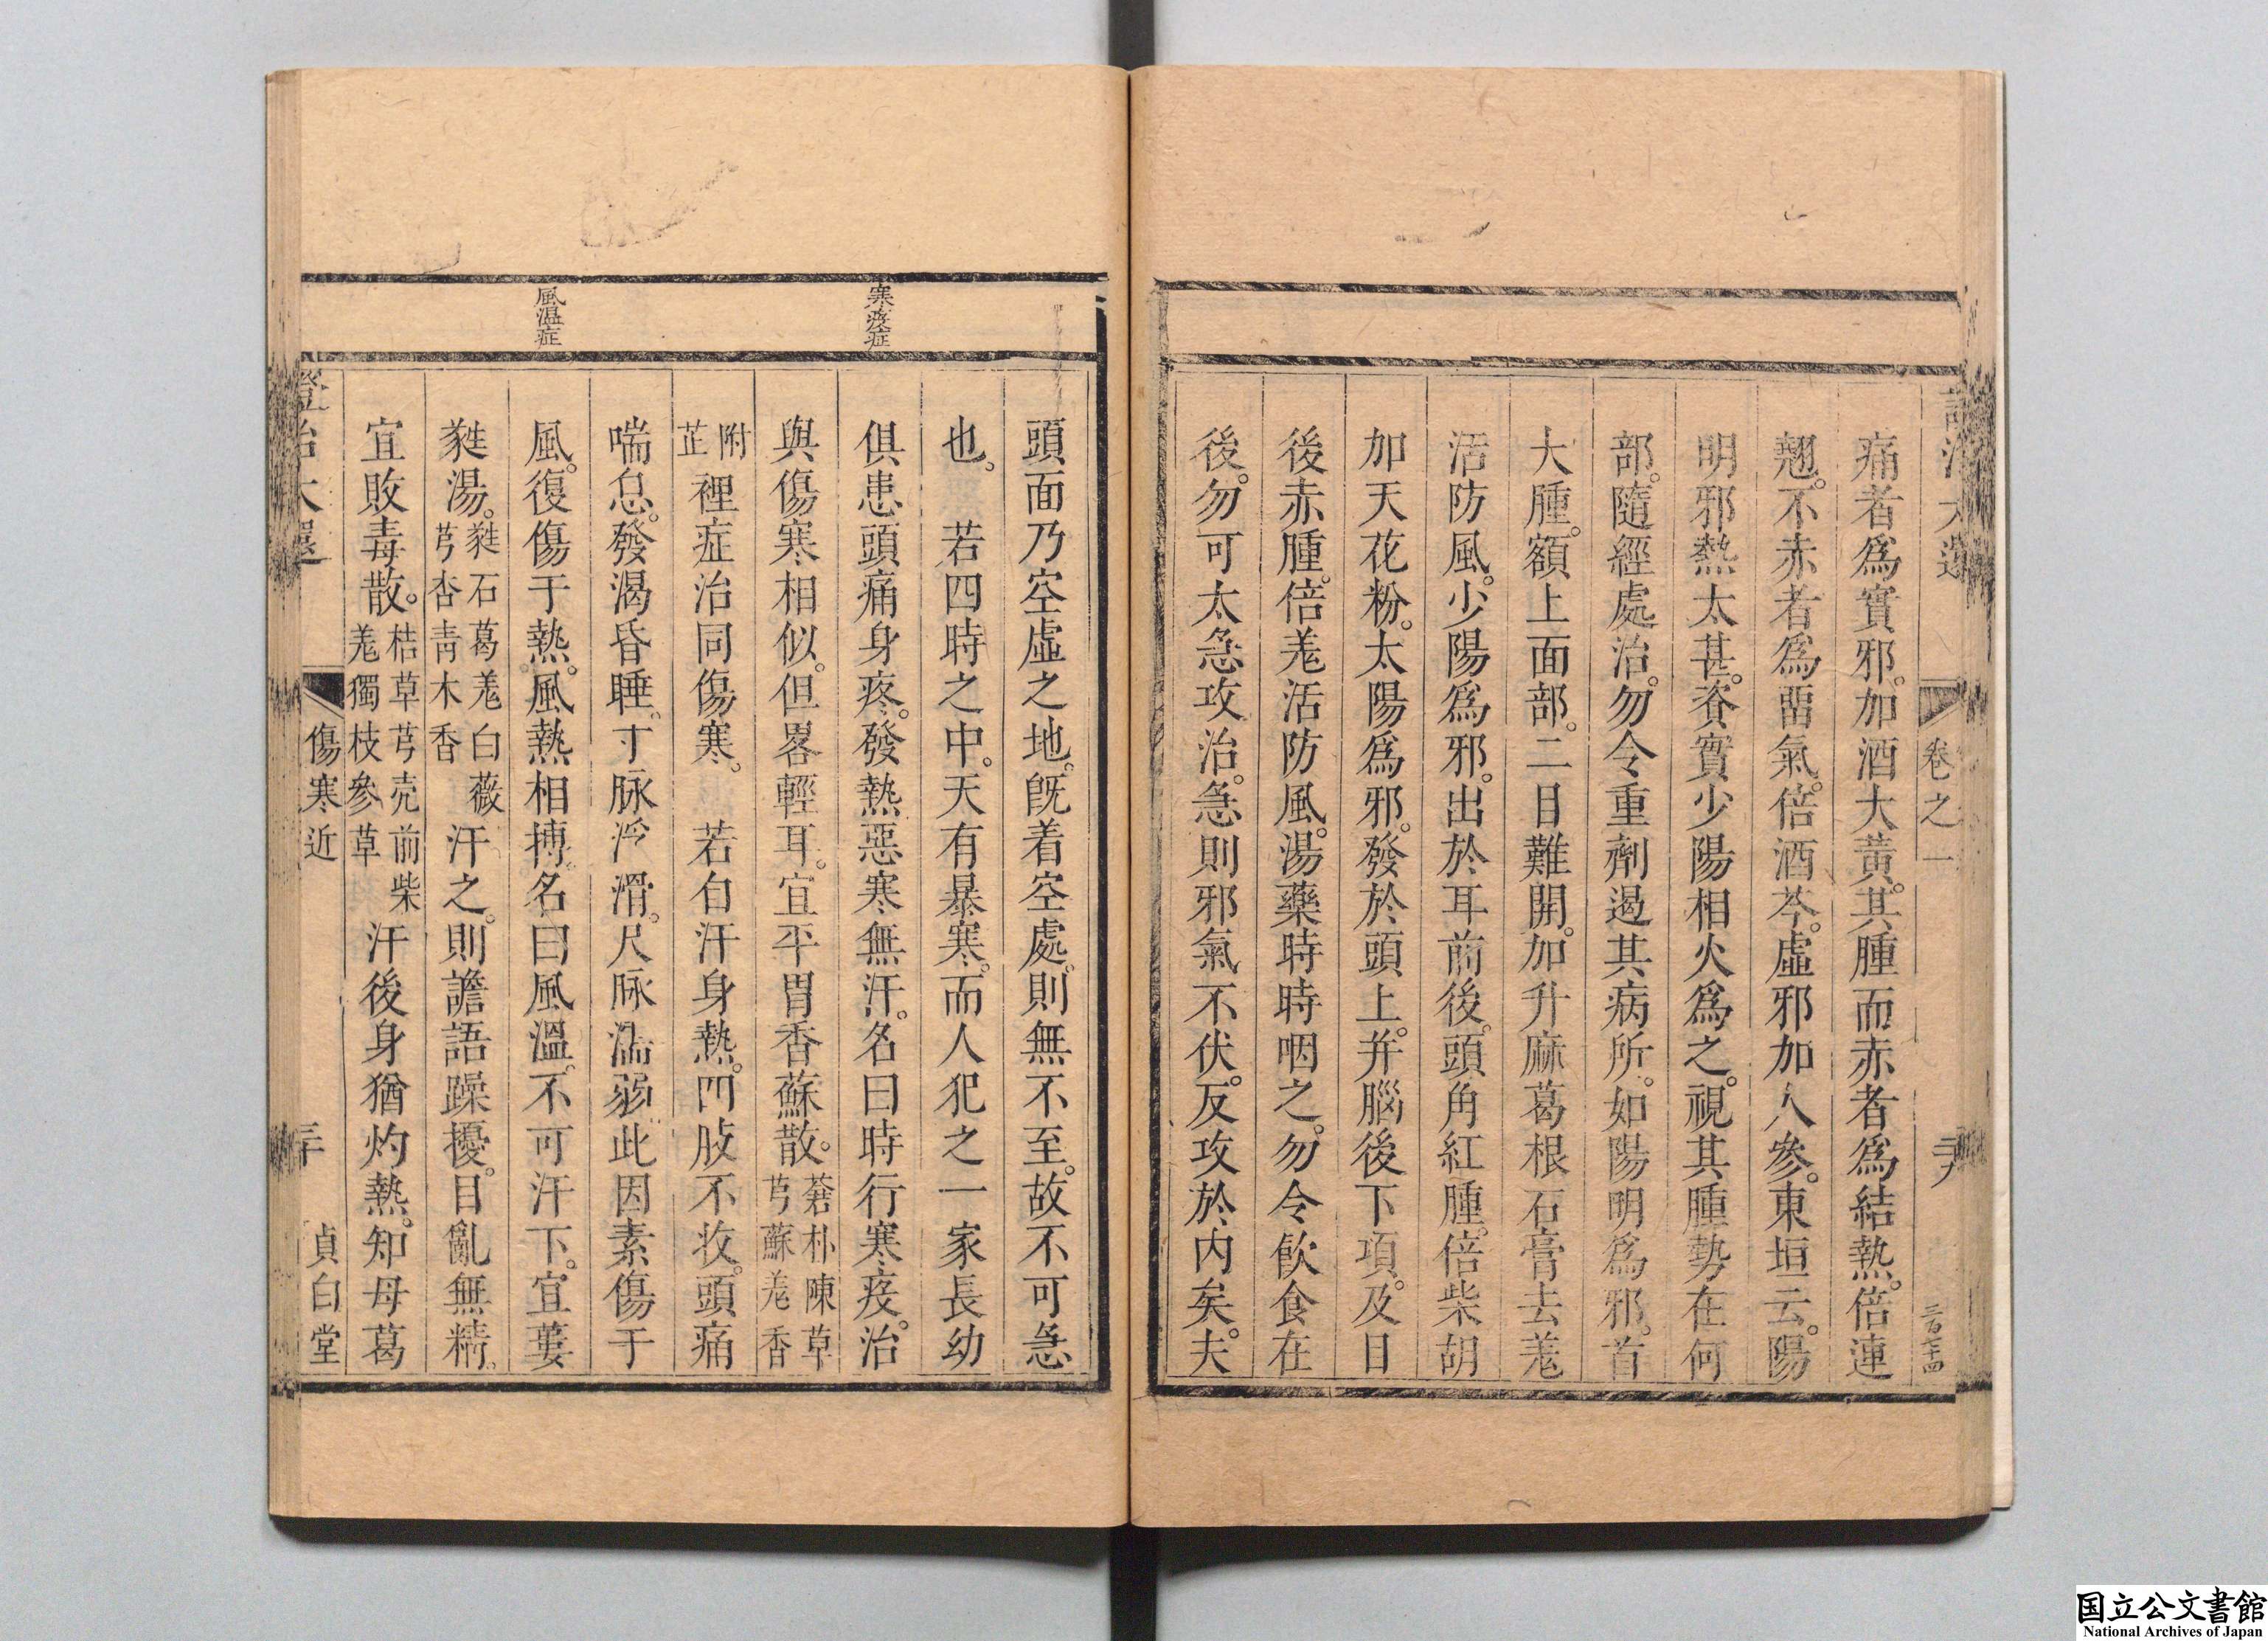 證治大還
卷之一
三百七十四
痛者爲實邪。加酒大黃。其腫而赤者爲結熱。倍連
翹。不赤者爲畱氣。倍酒芩。虛邪加人參。東垣云。陽
明邪熱太甚。資實少陽相火爲之。視其腫勢在何
部。隨經處治。勿令重劑過其病所。如陽明爲邪。首
大腫。額上面部。二目難開。加升麻葛根石膏去羗
活防風。少陽爲邪。出於耳前後。頭角紅腫。倍柴胡
加天花粉。太陽爲邪。發於頭上。并腦後下項。及目
後赤腫。倍羗活防風。湯藥時時咽之。勿令飲食在
後。勿可太急攻治。急則邪氣不伏。反攻於內矣。夫
頭面乃空虛之地。旣着空處。則無不至。故不可急
也。　若四時之中。天有暴寒。而人犯之一家長幼
寒疫症
俱患頭痛身疼。發熱惡寒無汗。名曰時行寒疫。治
與傷寒相似。但畧輕耳。宜平胃香蘇散。蒼朴陳草芎蘇羗香
附芷裡症治同傷寒。　若自汗身熱。四肢不收。頭痛
喘息。發渴昏睡。寸脉浮滑。尺脉濡弱。此因素傷于
風溫症
風。復傷于熱。風熱相搏。名曰風溫。不可汗下。宜葳
蕤湯。蕤石葛羗白薇芎杏靑木香汗之。則譫語躁擾。目亂無精。
宜敗毒散。桔草芎壳前柴羗獨枝參草汗後身猶灼熱。知母葛
證治大還
傷寒近
三十
貞白堂
国立公文書館
National Archives of Japan